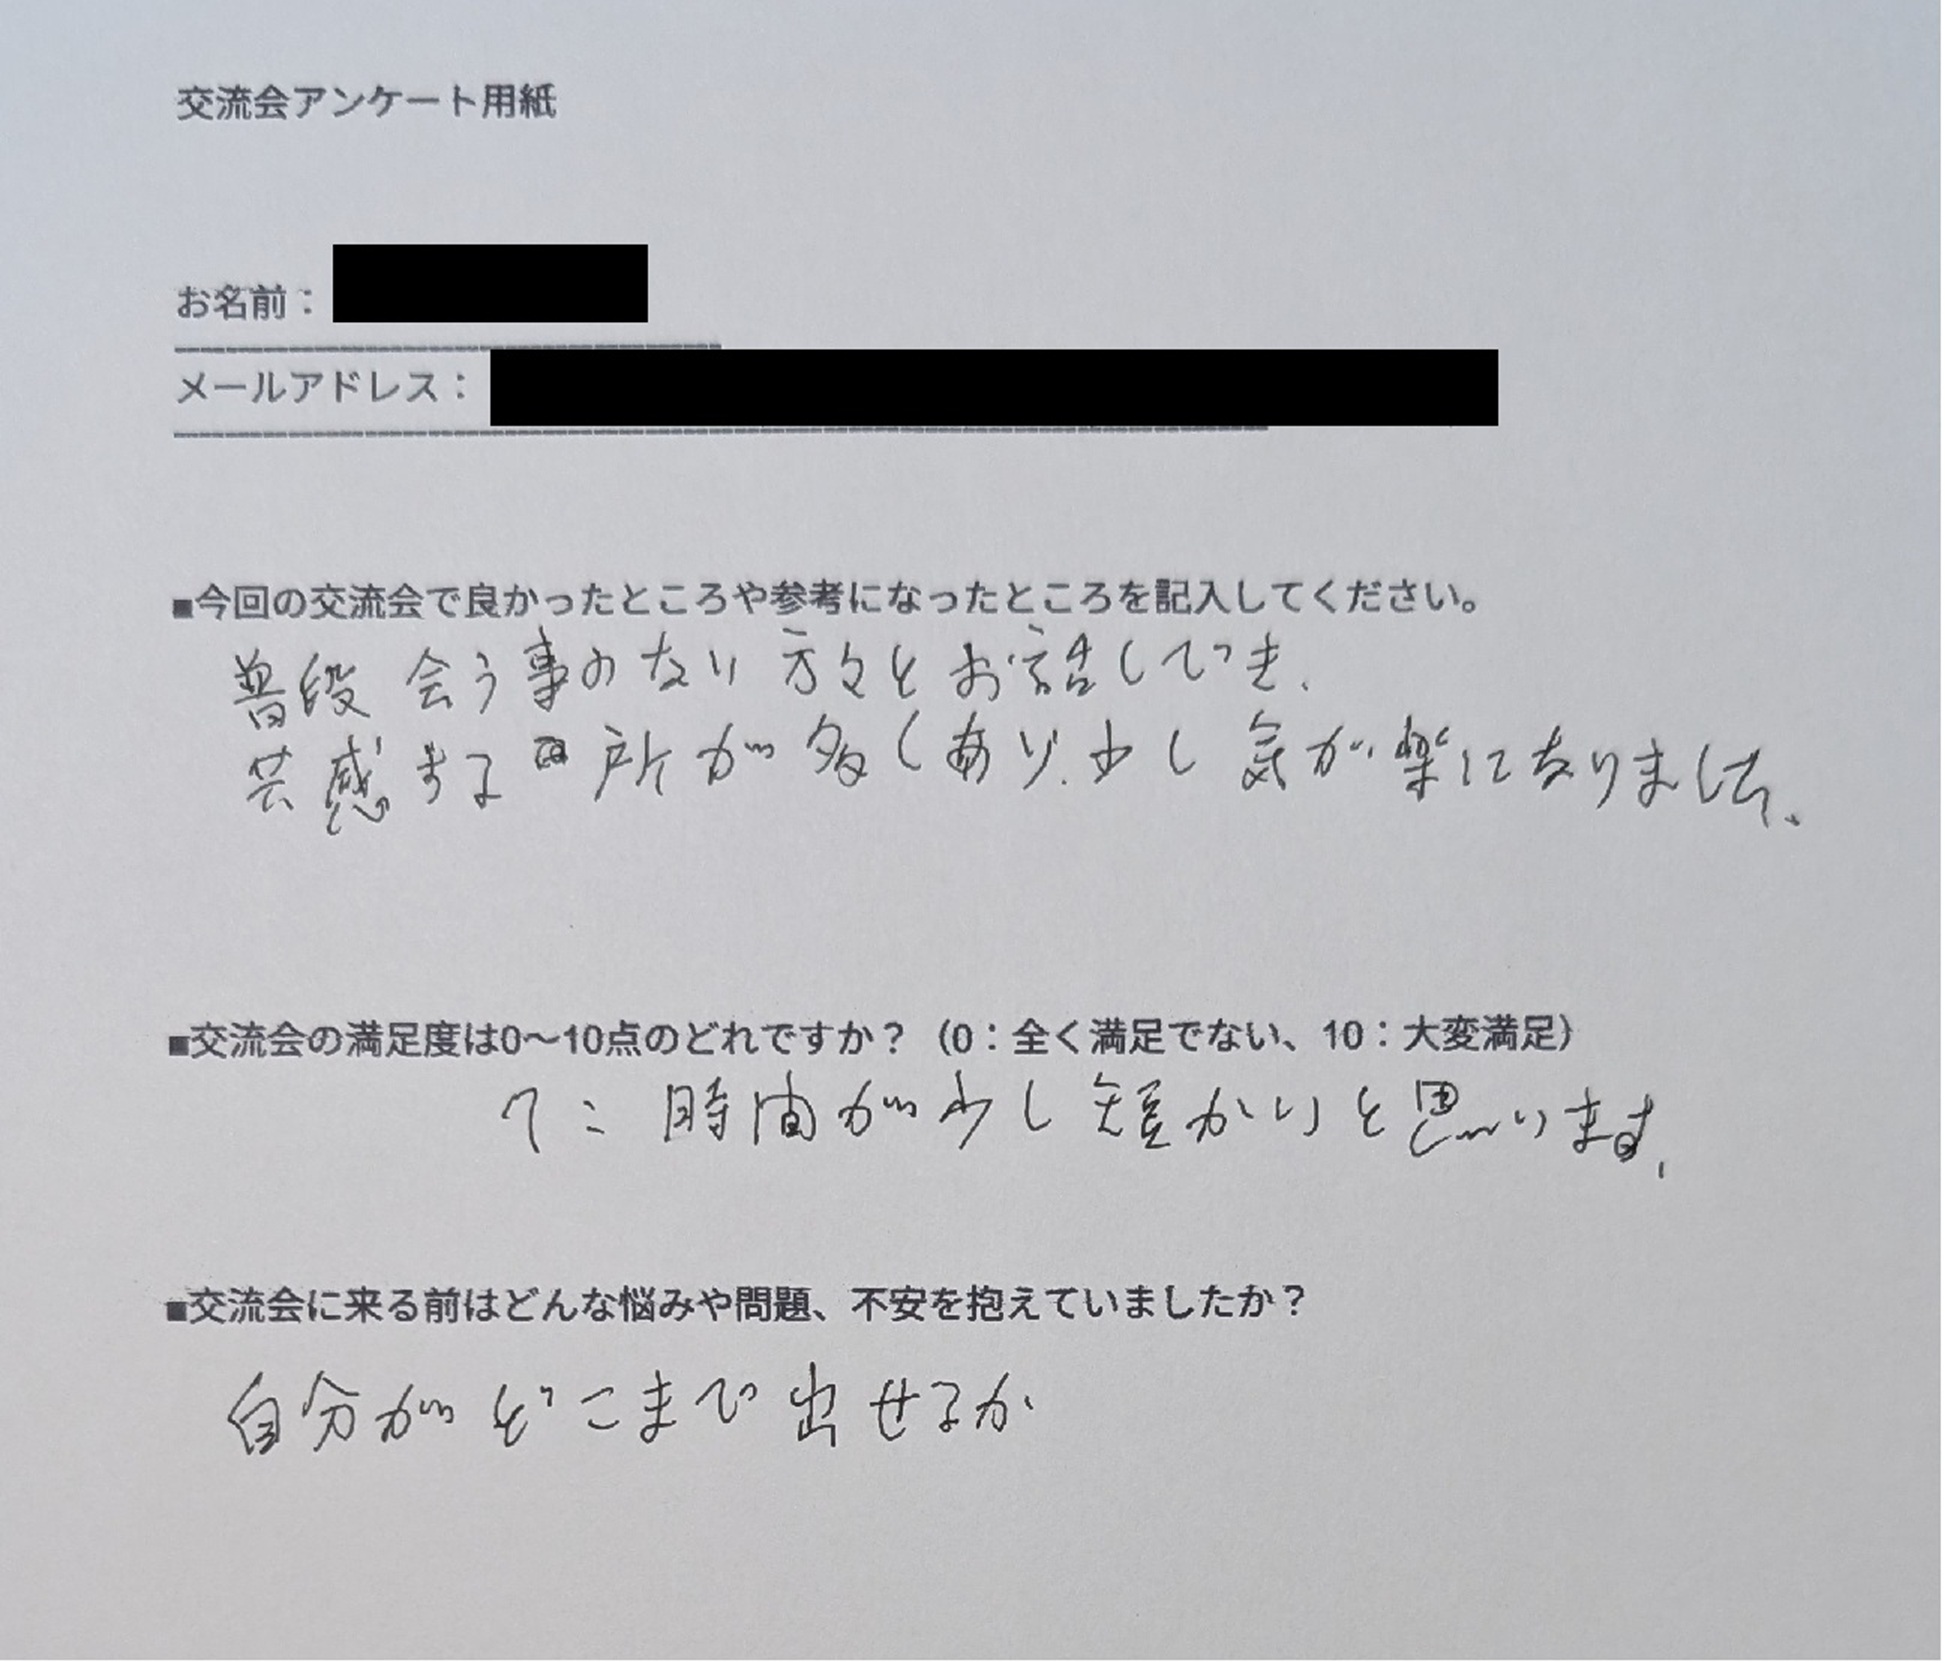 交流会アンケート用紙
お名前：
メールアドレス：
■今回の交流会で良かったところや参考になったところを記入してください。
普段会う事のない方々とお話しでき、
共感する所が多くあり、少し気が楽になりました。
■交流会の満足度は0～10点のどれですか？（0：全く満足でない、10：大変満足）
7：時間が少し短かいと思います。
■交流会に来る前はどんな悩みや問題、不安を抱えていましたか？
自分がどこまで出せるか